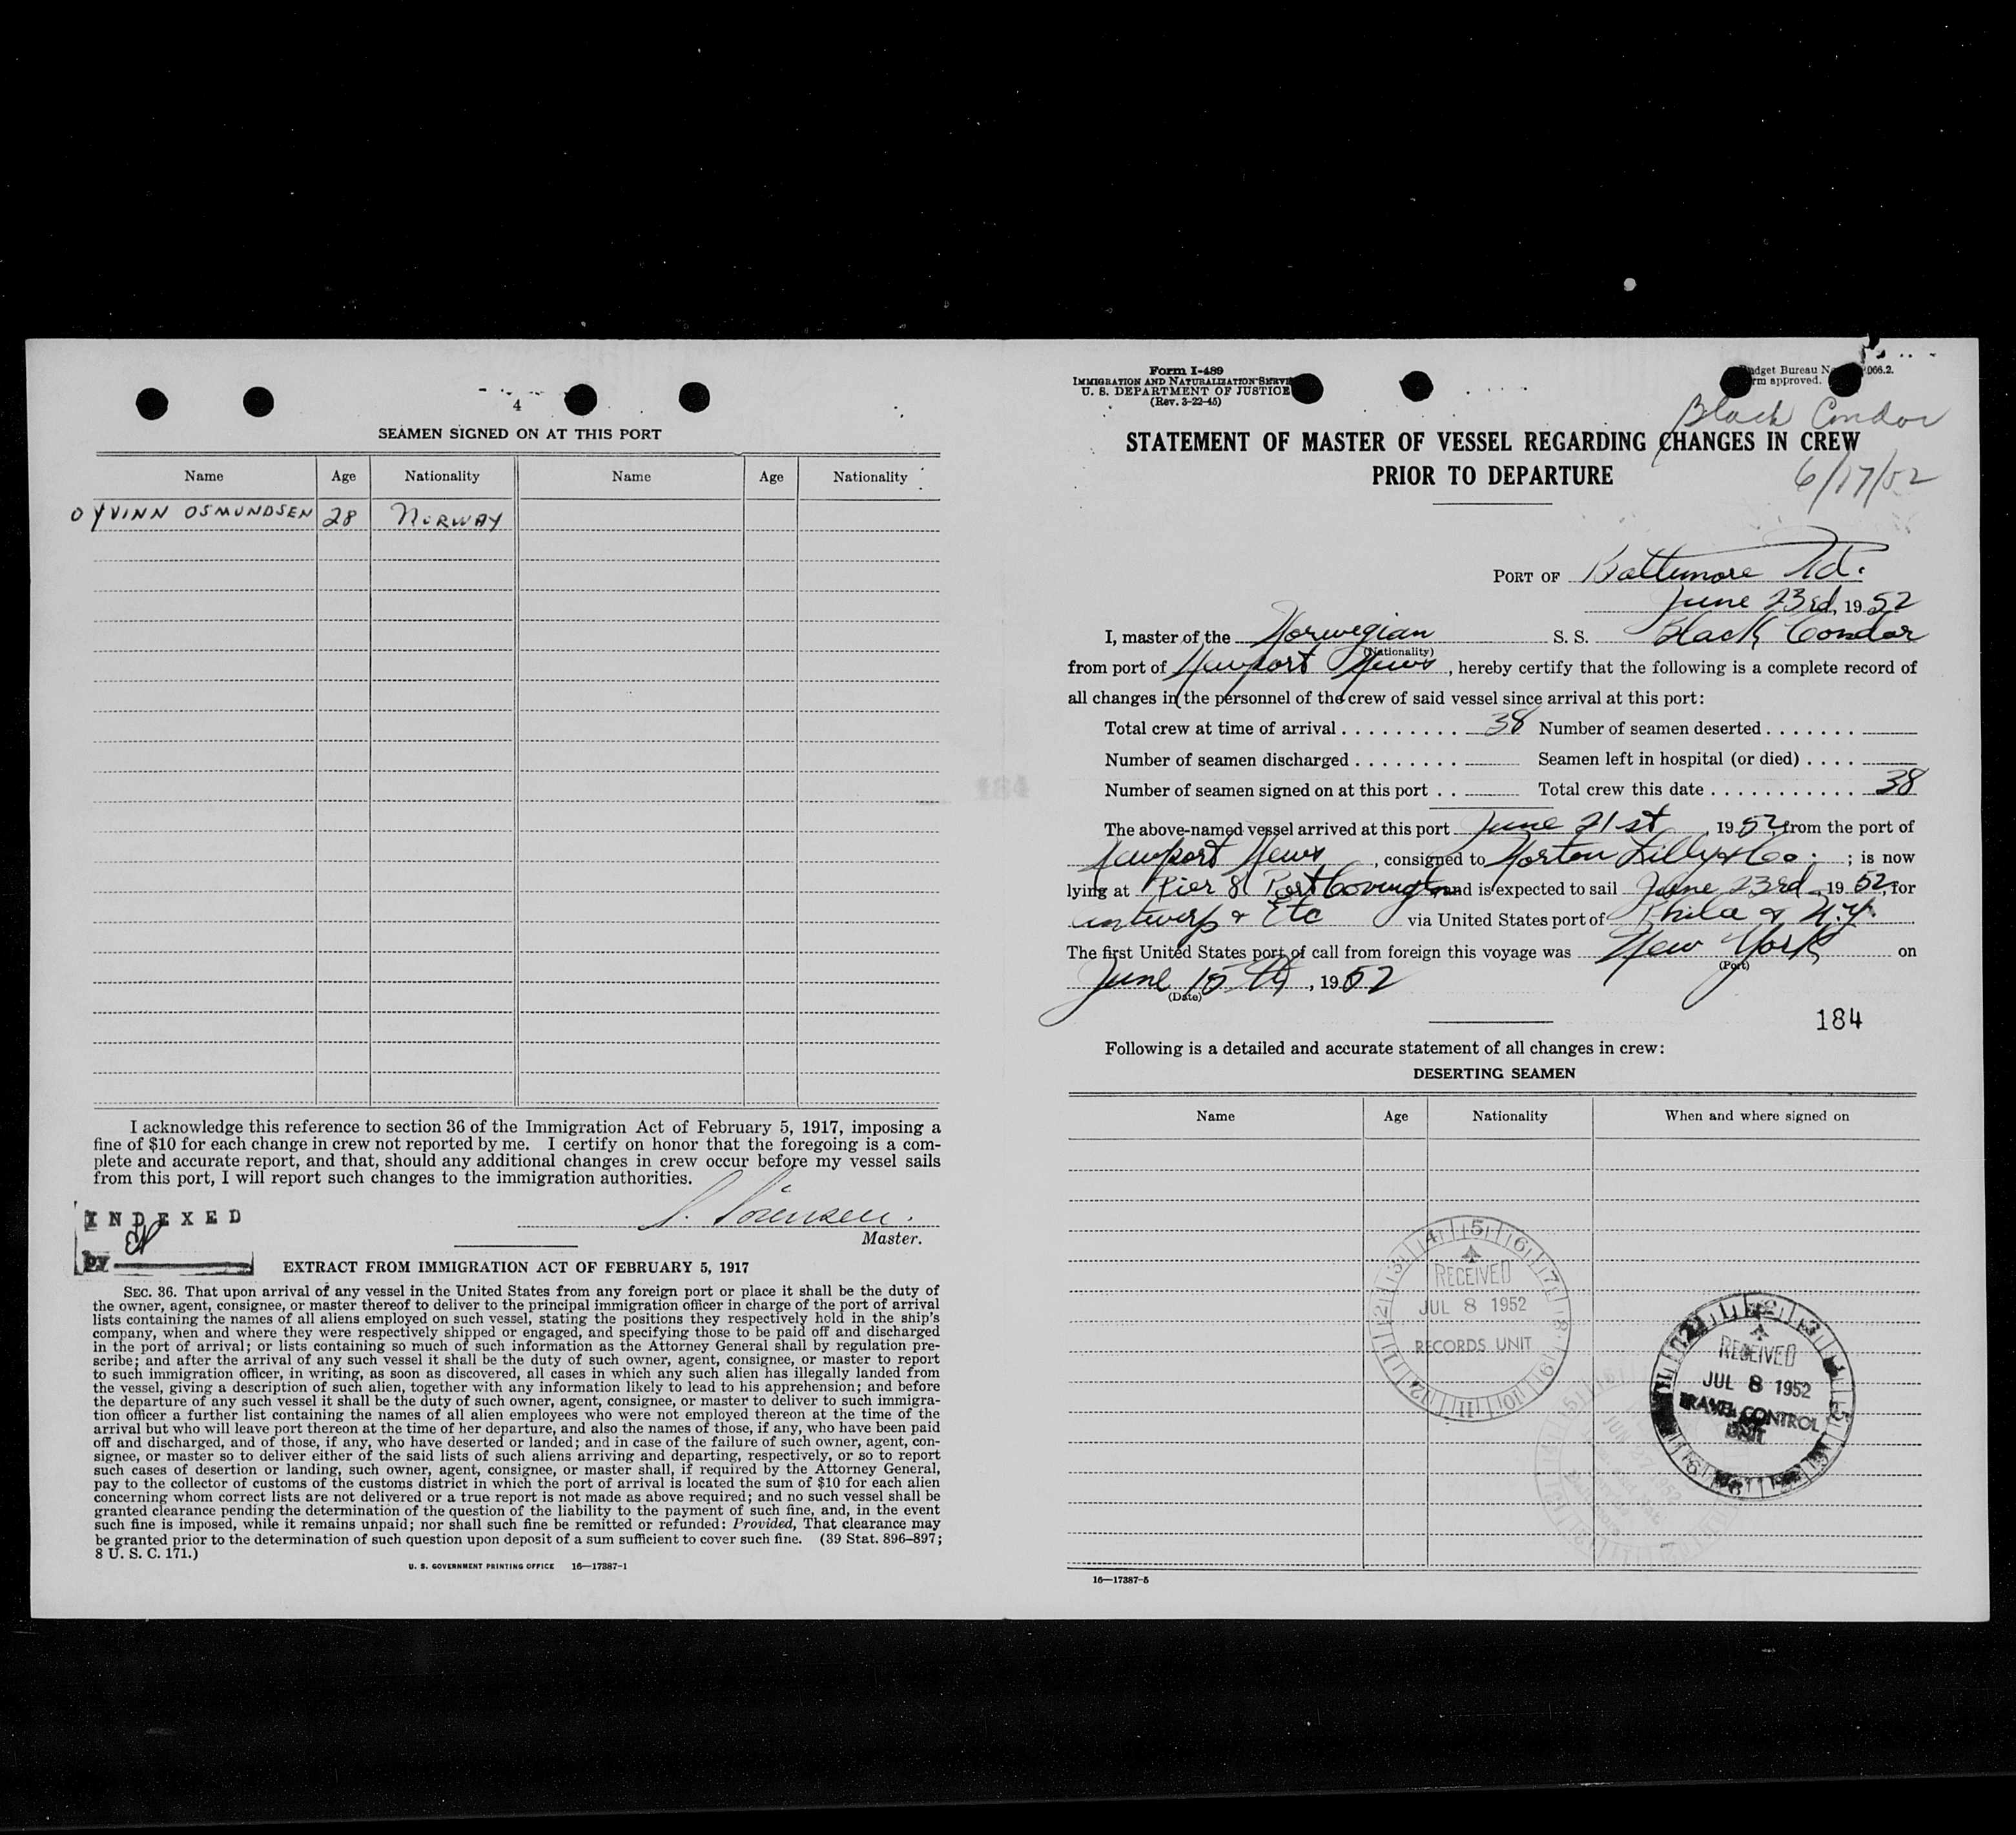 4
SEAMEN SIGNED ON AT THIS PORT
Name Age Nationality Name Age Nationality
OYVINN OSMUNDSEN 28 NORWAY
I acknowledge this reference to section 36 of the Immigration Act of February 5, 1917, imposing a
fine of $10 for each change in crew not reported by me. I certify on honor that the foregoing is a com-
plete and accurate report, and that, should any additional changes in crew occur before my vessel sails
from this port, I will report such changes to the immigration authorities.
S. Sörensen.
Master.
INDEXED
by
EXTRACT FROM IMMIGRATION ACT OF FEBRUARY 5, 1917
SEC. 36. That upon arrival of any vessel in the United States from any foreign port or place it shall be the duty of
the owner, agent, consignee, or master thereof to deliver to the principal immigration officer in charge of the port of arrival
lists containing the names of all aliens employed on such vessel, stating the positions they respectively hold in the ship's
company, when and where they were respectively shipped or engaged, and specifying those to be paid off and discharged
in the port of arrival; or lists containing so much of such information as the Attorney General shall by regulation pre-
scribe; and after the arrival of any such vessel it shall be the duty of such owner, agent, consignee, or master to report
to such immigration officer, in writing, as soon as discovered, all cases in which any such alien has illegally landed from
the vessel, giving a description of such alien, together with any information likely to lead to his apprehension; and before
the departure of any such vessel it shall be the duty of such owner, agent, consignee, or master to deliver to such immigra-
tion officer a further list containing the names of all alien employees who were not employed thereon at the time of the
arrival but who will leave port thereon at the time of her departure, and also the names of those, if any, who have been paid
off and discharged, and of those, if any, who have deserted or landed; and in case of the failure of such owner, agent, con-
signee, or master so to deliver either of the said lists of such aliens arriving and departing, respectively, or so to report
such cases of desertion or landing, such owner, agent, consignee, or master shall, if required by the Attorney General,
pay to the collector of customs of the customs district in which the port of arrival is located the sum of $10 for each alien
concerning whom correct lists are not delivered or a true report is not made as above required; and no such vessel shall be
granted clearance pending the determination of the question of the liability to the payment of such fine, and, in the event
such fine is imposed, while it remains unpaid; nor shall such fine be remitted or refunded: Provided, That clearance may
be granted prior to the determination of such question upon deposit of a sum sufficient to cover such fine. (39 Stat. 896-897;
8 U. S. C. 171.)
U. S. GOVERNMENT PRINTING OFFICE 16—17387-1
Form I-489
IMMIGRATION AND NATURALIZATION SERVI
U. S. DEPARTMENT OF JUSTICE
(Rev. 3-22-45)
dget Bureau N 066.2.
rm approved.
Black Condor
STATEMENT OF MASTER OF VESSEL REGARDING CHANGES IN CREW
PRIOR TO DEPARTURE
6/17/52
PORT OF Baltimore Md.
June 23rd, 1952
I, master of the Norwegian S. S. Black Condor
(Nationality)
from port of Newport News, hereby certify that the following is a complete record of
all changes in the personnel of the crew of said vessel since arrival at this port:
Total crew at time of arrival . . . . . . . . . 38 Number of seamen deserted . . . . . . .
Number of seamen discharged . . . . . . . . Seamen left in hospital (or died) . . . .
Number of seamen signed on at this port . . Total crew this date . . . . . . . . . . . 38
The above-named vessel arrived at this port June 21st, 1952, from the port of
Newport News, consigned to Norton Lilly & Co.; is now
lying at Pier 8 Port Covington and is expected to sail June 23rd, 1952, for
Antwerp & Etc via United States port of Phila & N.Y.
The first United States port of call from foreign this voyage was New York on
(Port)
June 15th, 1952
(Date)
184
Following is a detailed and accurate statement of all changes in crew:
DESERTING SEAMEN
Name Age Nationality When and where signed on
RECEIVED
JUL 8 1952
RECORDS UNIT
RECEIVED
JUL 8 1952
TRAVEL CONTROL
UNIT
16—17387-5